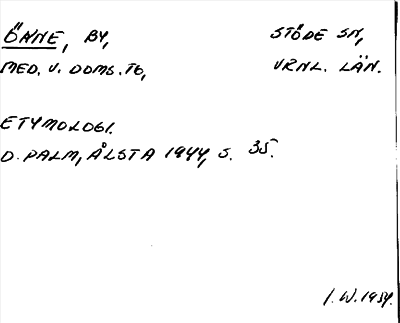 ÖHNE, BY, STÖDE SN,
MED. V. DOMS. TG, VRNL. LÄN.
ETYMOLOGI.
D. PALM, ÅLSTA 1944, S. 35.
I. W. 1954.